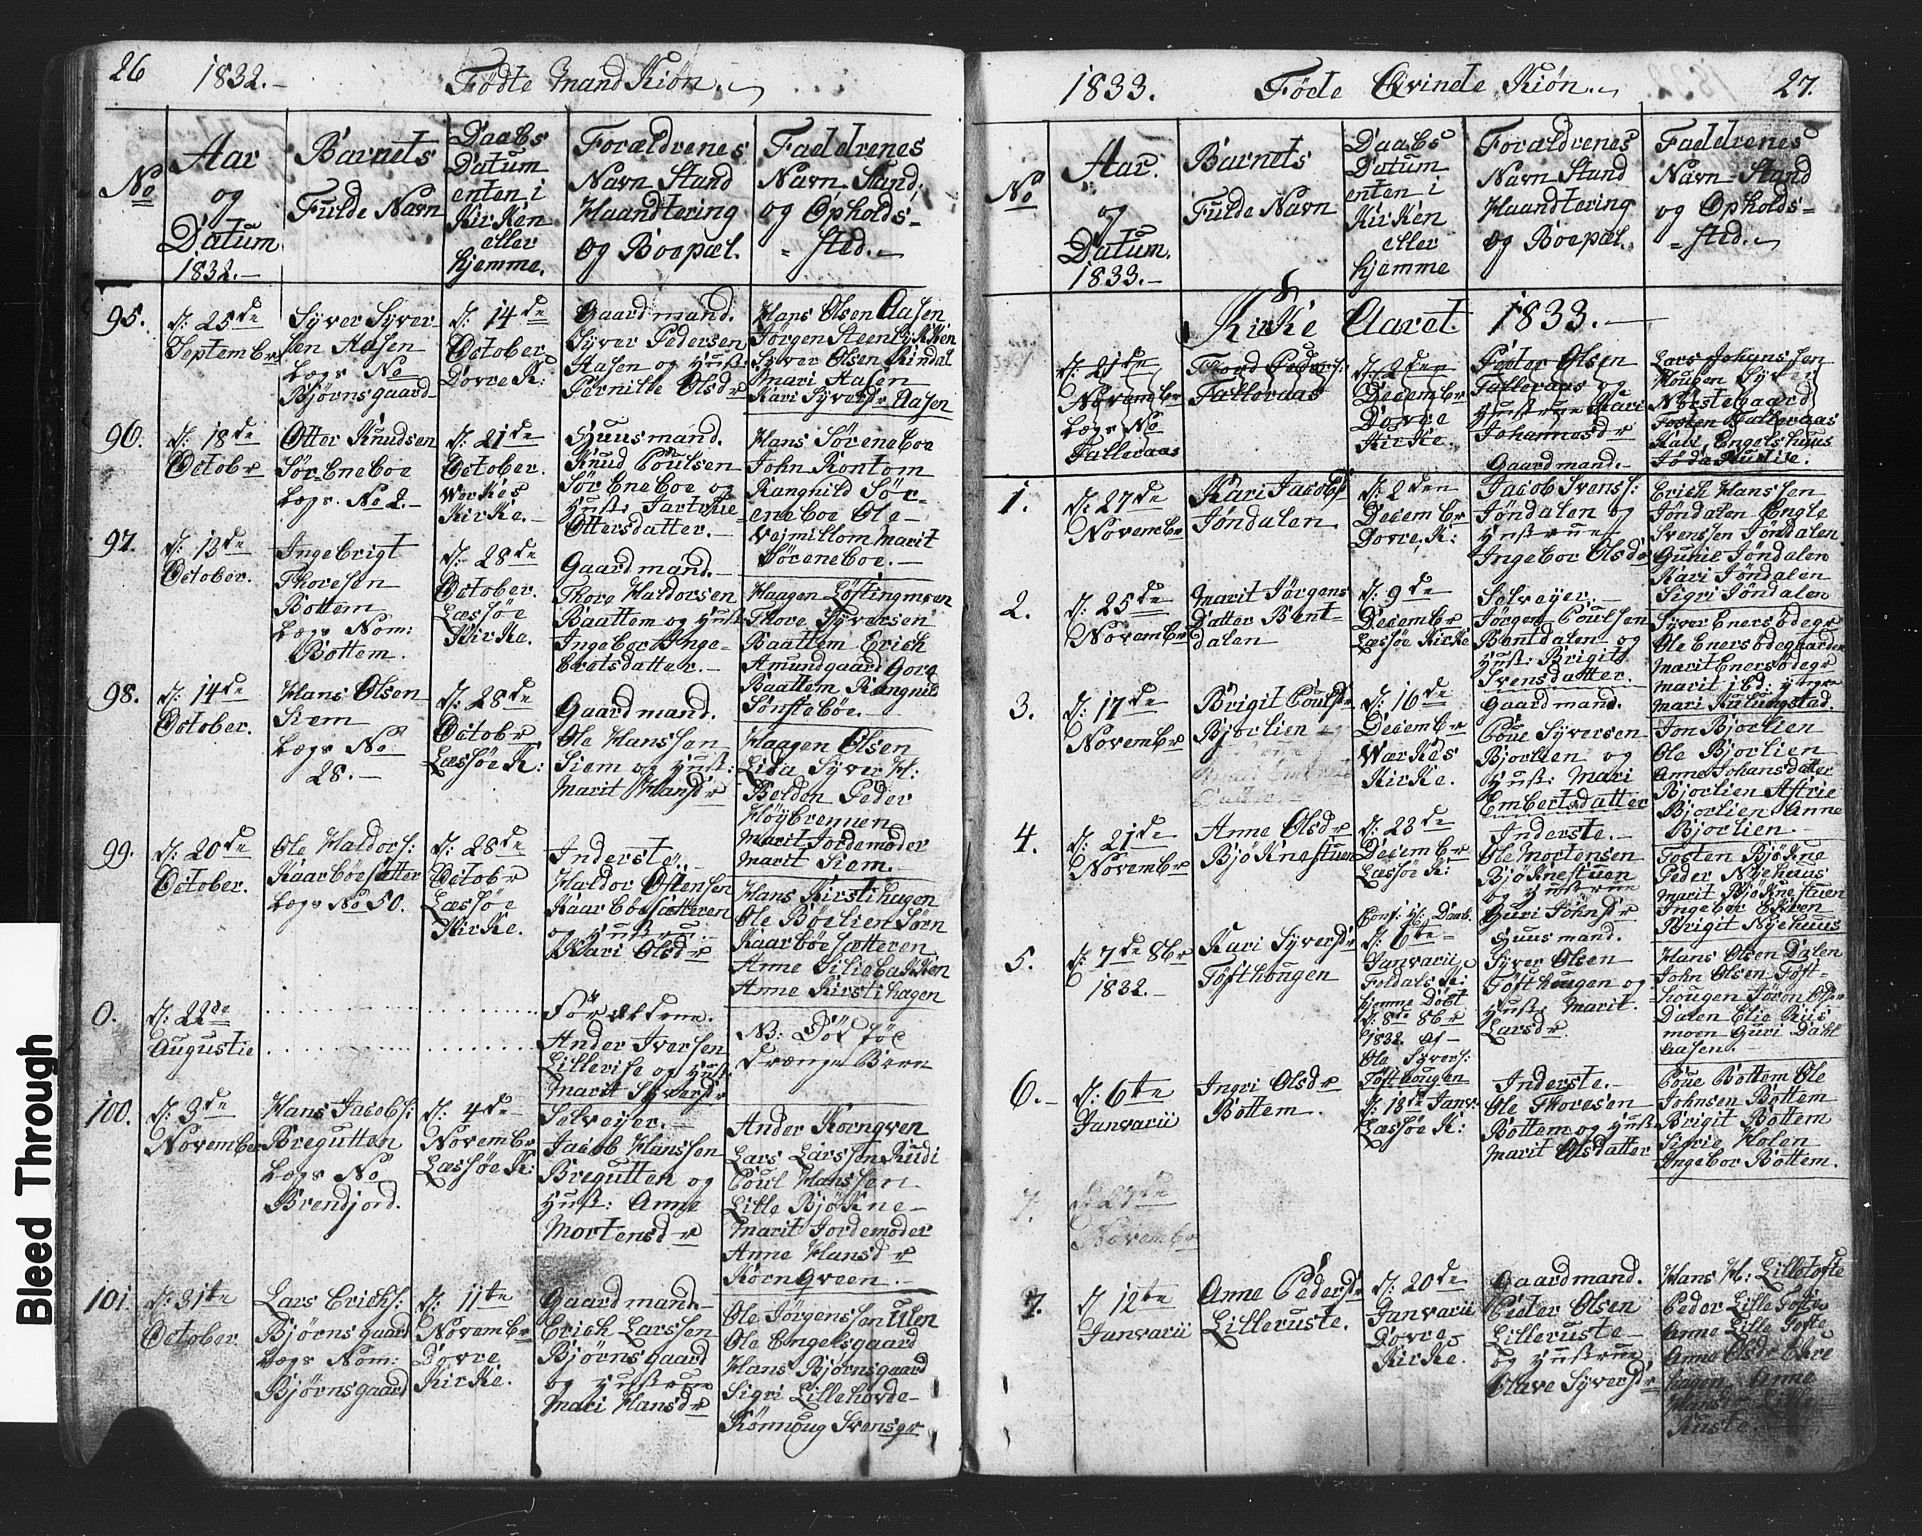 26 1832.- Fødte Mand Kiøn.
No
Aar
og
Datum
1832.-
Barnets
Fulde Navn
Daabs
Datum
enten i
Kirken
eller
hjemme.
Forældrenes
Navn Stand
Haandtering
og Boepæl.
Faddrenes
Navn Stand,
og Opholds=
=sted.-
95.
d: 25de
September
Syver Syver-
sen Aasen
Lægs No
Bjørnsgaard
d: 14de
October
Dovre K:
Gaardmand.
Syver Pedersen
Aasen og Hust:
Pernille Olsdr
Hans Olsen Aasen
Jørgen Steenbekken
Syver Olsen Rindal
Mari Aasen
Kari Syversdr Aasen
96.
d: 18de
Octobr
Otter Knudsen
Sør Eneboe
Lægs No 2.-
d: 21de
October.
Werkes
Kirke.-
Huusmand.
Knud Poulsen
Sør Eneboe og
Hust:
Ottersdatter.-
Hans Søreneboe
John Rontom
Rangnild Sør-
eneboe Ole-
Vejmillom Marit
Søreneboe.-
97.
d: 13de
October.
Ingebrigt
Thoresen
Bottem
Lægs Nom:
Bottem.
d: 28de
October.
Læssøe
Kirke.
Gaardmand.-
Thore Haldorsen
Baattem og Hust
Ingebor Inge-
brotsdatter.-
Haagen Løftingmoen
Thore Syversen
Baattem Erich
Amundgaard Goro
Baattem Rangnild
Sønsteböe.-
98.
d: 14de
October.
Hans Olsen
Siem
Lægs No
28.-
d: 28de
Octobr
Læssøe K:
Gaardmand.
Ole Hanssen
Siem og Hust:
Marit Hansdr
Haagen Olsen
Lida Syver H:
Boldon Peder
Høybrennen
Marit Jordemoder
Marit Siem.-
99.
d: 20de
October.
Ole Haldors:
Kaarbøesætter
Lægs No 50.
d: 28de
Octobr
Læssøe
Kirke.
Inderste.
Haldor Østensen
Kaarbøesætteren
og Hustrue
Mari Olsdr
Hans Kirstihagen
Ole Bøelien Sørn
Kaarbøesætteren
Anne Siliebakken
Anne Kirstihagen
0.
d: 22de
Augustie
Forældrene.
Ander Iversen
Lillerise og Hust
Marit Syversdr
NB: Död föd
Drænge Barn
100.
d: 3de
November
Hans Jacobs:
Bregutten
Lægs No
Brendjord.
d: 4de
Novembr
Læssøe K:
Selveijer.-
Jacob Hanssen
Bregutten og
Hust: Anne
Mortensdr
Ander Korngven
Lars Larssen Rudi
Poul Hanssen
Lille Bjøkne-
Marit Jordemoder
Anne Hansdr
Korngveen.-
101.
d: 31te
October.
Lars Erichs:
Bjørnsgaard
Lægs Nom:
Bjørnsgaard
d: 11te
Novembr
Dovre
Kirke.
Gaardmand-
Erich Larssen
Bjørnsgaard
og Hustrue
Mari Hansdr
Ole Jørgenssen Ulen
Ole Engelsgaard
Hans Bjørnsgaard
Sigri Lillehovde-
Rønnoug Svensgr.
1833. Føde Qvinde Kiøn. 27.
No
Aar.
og
Datum.
1833.-
Barnets
Fulde Navn
Daabs
Datum
enten i
Kirken
eller
hjemme
Forældrenes
Navn Stand
Haandtering
og Boepæl.
Faddrenes
Navn Stand
og Opholds=
=sted.-
Kirke Aaret. 1833.-
d: 21de
Novembr
Lægs No
Talleraas
Thord Peders:
Talleraas
d: 2den
Decembr
Dovre
Kirke.
Peder Olsen
Talleraas og
Hustrue Mari
Johannesdr
Lars Johanssen
Hougen Syver
Nørstegaard
Tosten Talleraas
Kari Engelshuus
1.
d: 27de
Novembr
Kari Jacobsdr
Jøndalen
d: 2den
Decembr
Dovre, K:
Gaardmand.-
Jacob Svens:
Jøndalen og
Hustrue
Ingebor Olsdr
Erich Hanssen
Jøndalen Engle
Svenssen Jøndalen
Gunil Jøndalen
Kari Jøndalen
Sigri Jøndalen
2.
d: 25de
Novembr
Marit Jørgens
Datter Bent-
dalen
d: 9de
Decembr
Læssøe Kirke
Selveijer.-
Jørgen Poulsen
Bentdalen og
Hust: Brigit
Svensdatter.
Syver Enersødegr
Ole Enersødegaarden
Marit Enersødegr
Marit ibd: yngre
Mari Kulungstad.
3.
d: 17de
Novembr
Brigit Poulsdr
Bjorlien
d: 16de
Decembr
Warkes
Kirke.
Gaardmand.
Poue Syversen
Bjorlien og
Hust: Mari
Embertsdatter
Jon Bjorlien
Ole Bjorlien
Anne Johansdatter
Bjorlien Astrie
Bjorlien Anne
Bjorlien.-
4.
d: 21de
Novembr
Anne Olsdr
Bjøknestuen
d: 23de
Decembr
Læssøe K:
Inderste.-
Ole Mortensen
Bjøknestuen
og Hustrue
Guri Johnsdr
Tosten Bjøkne
Peder Nyehuus
Marit Bjøknestuen
Ingebor Ekren
Brigit Nyehuus
5.
d: 7de 8br
1832.-
Kari Syversdr
Tøfthougen
Conf. H: Daab.
d: 6te-
Janvarii
Foldals K:
hjemme Döbt
d: 8de 8br
1832. af-
Ole Syvers:
Tøfthougen
Huusmand.
Syver Olsen
Tøfthougen og
Hust: Marit
Larsdr.
Hans Olsen Dalen
John Olsen Tøft-
hougen Jøron Olsdr
Dalen Elie Riis
moen Guri Dahl
aasen.
6.-
d: 6te
Janvarii
Ingri Olsdr
Bottem.
d: 13de Janv:
Læssøe K:
Inderste.-
Ole Thoresen
Bottem og Hust
Marit Olsdatter
Poue Bottem Ole
Johnsen Bottem
Brigit Bottem
Sigrie Holen
Ingebor Bottem.
7.
d: 27de
Novembr
7.
d 12te
Janvarii
Anne Pedersdr
Lilleruste.
d: 20de
Janvarii
Dovre
Kirke.
Gaardmand.
Peder Olsen
Lilleruste-
og Hustrue
Olave Syversdr
Hans H: Lilletofte
Peder Lille Tofte
Anne Lille Tofte
Anne Olsdr Ekre
hagen Anne
Hansd Lille
Ruste.
Bleed Through